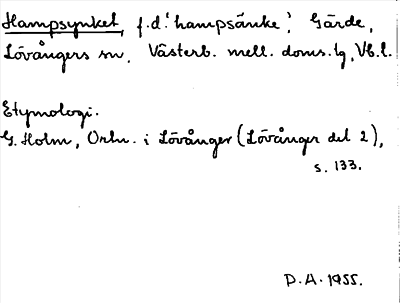 Hampsynket, f.d. 'hampsänke', Gärde,
Lövångers sn, Västerb. mell. doms.lg, Vb.l.
Etymologi.
G. Holm, Ortn. i Lövånger (Lövånger del 2),
s. 133.
D.A. 1955.